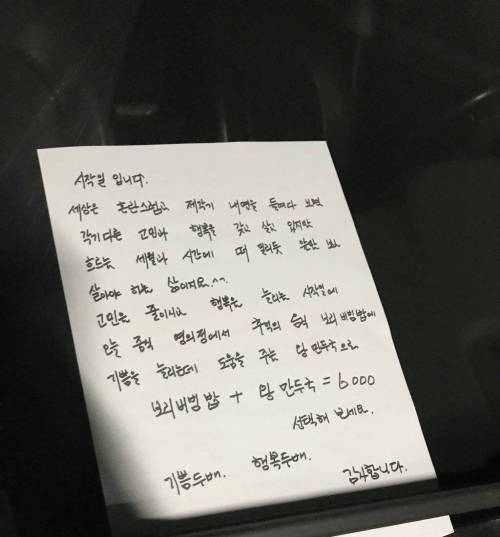 시작일 입니다.
세상은 혼란스럽고 제각기 내면을 들여다 보면
각기 다른 고민과 행복을 갖고 살고 있지만
흐르는 세월과 시간에 떠 밀리듯 앞만 보고
살아야 하는 삶이지요.^^
고민은 줄이시고 행복은 늘리는 시작일에
오늘 중식 명의정에서 추억의 음식 보리비빔밥에
기쁨을 늘리는데 도움을 주는 왕만두국으로.
보리비빔밥 + 왕만두국 = 6000
선택해 보세요.
기쁨두배. 행복두배. 감사합니다.